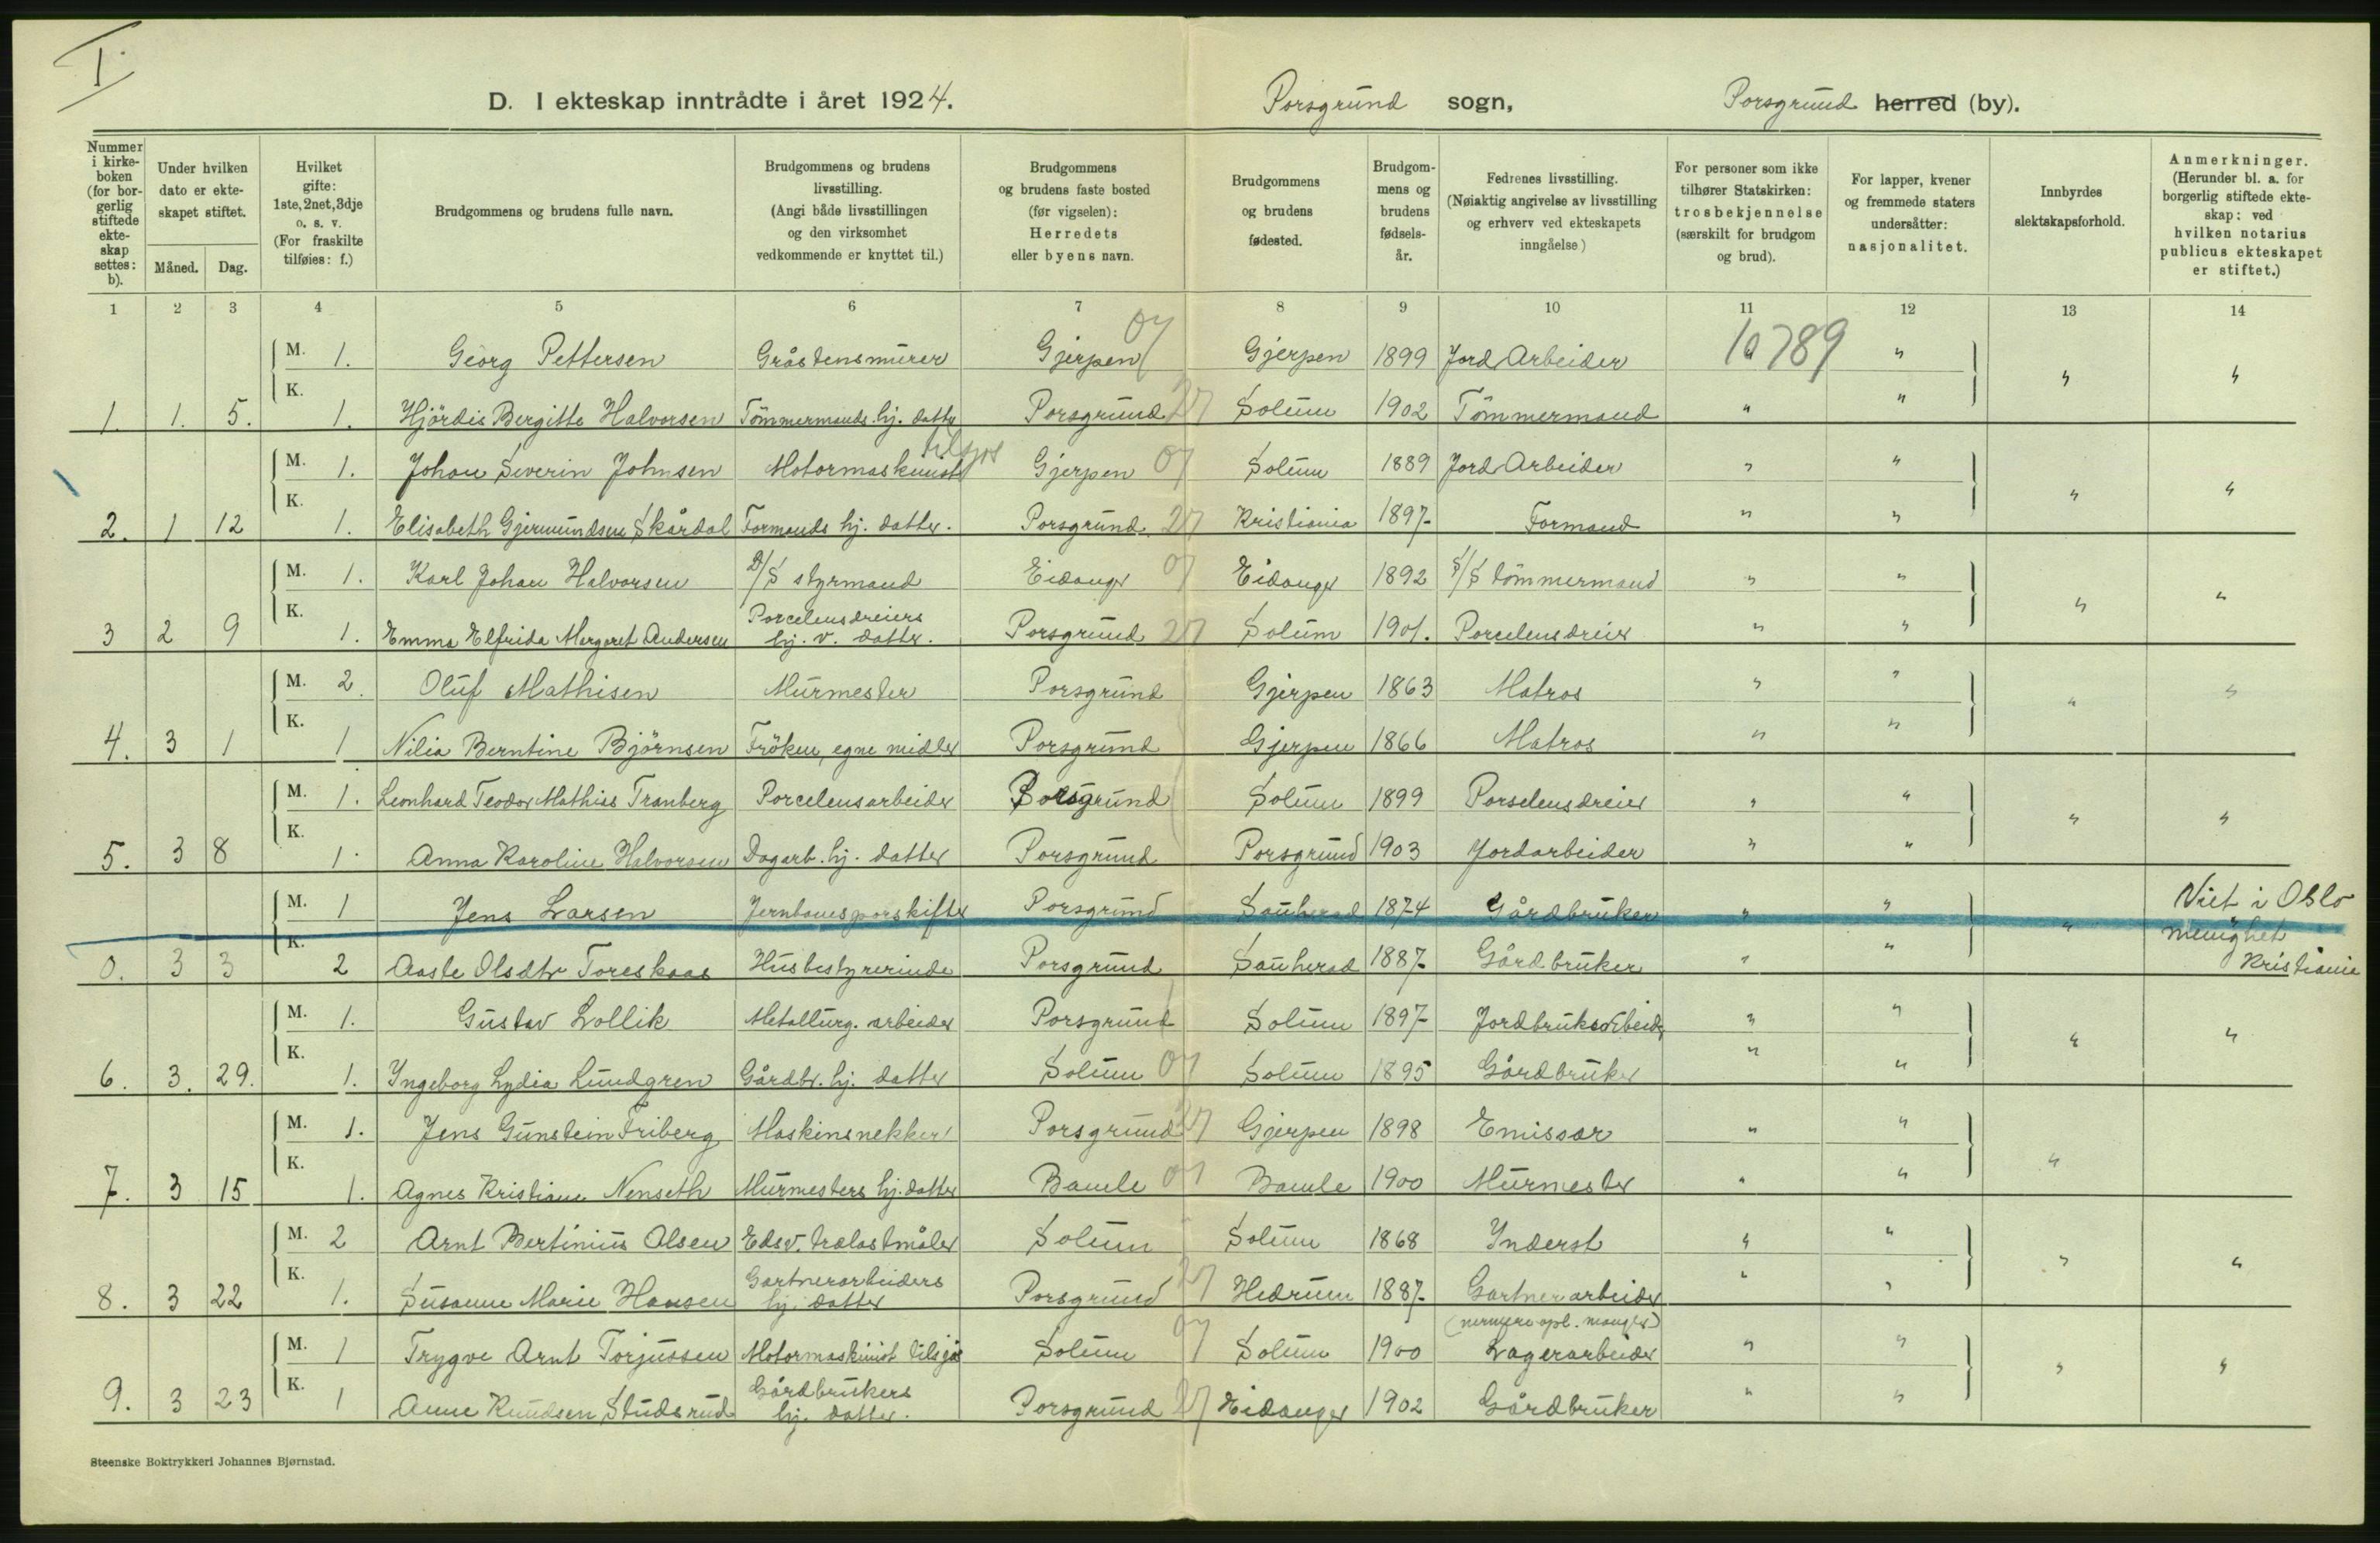 I.
D. I ekteskap inntrådte i året 1924. Porsgrund sogn, Porsgrund herred (by).
Nummer i kirke-boken (for bor-gerlig stiftede ekte-skap settes: b). Under hvilken dato er ekte-skapet stiftet. Måned. Dag. Hvilket gifte: 1ste, 2net, 3dje o. s. v. (For fraskilte tilføies: f.) Brudgommens og brudens fulle navn. Brudgommens og brudens livsstilling. (Angi både livsstillingen og den virksomhet vedkommende er knyttet til.) Brudgommens og brudens faste bosted (før vigselen): Herredets eller byens navn. Brudgommens og brudens fødested. Brudgom-mens og brudens fødsels-år. Fedrenes livsstilling. (Nøiaktig angivelse av livsstilling og erhverv ved ekteskapets inngåelse) For personer som ikke tilhører Statskirken: trosbekjennelse (særskilt for brudgom og brud). For lapper, kvener og fremmede staters undersåtter: nasjonalitet. Innbyrdes slektskapsforhold. Anmerkninger. (Herunder bl. a. for borgerlig stiftede ekte-skap: ved hvilken notarius publicus ekteskapet er stiftet.)
1 2 3 4 5 6 7 8 9 10 11 12 13 14
M. 1. Georg Pettersen Gråstensmürer Gjerpen 07 Gjerpen 1899 Jord Arbeider 10789 " " "
1. 1. 5. K. 1. Hjördis Bergitte Halvorsen Tömmermands hj. datter Porsgrund 27 Solum 1902 Tömmermand " "
M. 1. Johan Severin Johnsen Motormaskinist tilsjøs Gjerpen 07 Solum 1889 Jord Arbeider " " " "
2. 1 12 K. 1. Elisabeth Gjermundsen Skårdal Formands hj. datter. Porsgrund 27 Kristiania 1897 Formand " "
M. 1. Karl Johan Halvorsen D/S styrmand Eidanger 07 Eidanger 1892 S/S tömmermand " " " "
3 2 9 K. 1. Emma Elfrida Margaret Andersen Porcelensdreiers hj. v. datter. Porsgrund 27 Solum 1901. Porcelensdreier " "
M. 2. Oluf Mathisen Murmester Porsgrund Gjerpen 1863 Matros " " " "
4. 3 1 K. 1 Nilia Berntine Björnsen Fröken, egne midler Porsgrund Gjerpen 1866 Matros " "
M. 1. Leonhard Teodor Mathias Tranberg Porcelensarbeider Porsgrund Solum 1899 Porselensdreier " " " "
5. 3 8 K. 1. Anna Karoline Halvorsen Dagarb. hj. datter Porsgrund Porsgrund 1903 Jordarbeider " "
M. 1 Jens Larsen Jernbanesporskifter Porsgrund Sauherad 1874 Gårdbruker " " " Viet i Oslo menighet
0. 3 3 K. 2 Aaste Olsdtr Toreskaas Husbestyrerinde Porsgrund Sauherad 1887 Gårdbruker " " Kristiania
M. 1. Gustav Lollik Metallurg. arbeider Porsgrund Solum 1897 Jordbruksarbeider " " " "
6. 3. 29. K. 1. Ingeborg Lydia Lundgren Gårdbr. hj. datter Solum 07 Solum 1895 Gårdbruker " "
M. 1. Jens Gunstein Friberg Maskinsnekker Porsgrund 27 Gjerpen 1898 Emissær " " "
7. 3 15 K. 1. Agnes Kristiane Nenseth Murmesters hj. datter Bamle 07 Bamle 1900 Murmester " "
M. 2 Arnt Bertinius Olsen Edsv. trælastmåler Solum Solum 1868 Inderst " " " "
8. 3 22 K. 1. Susanne Marie Hansen Gartnerarbeiders hj. datter Porsgrund 27 Hedrum 1887 Gartnerarbeider " "
(nermere opl. mangler)
M. 1 Trygve Arnt Torjussen Motormaskinist tilsjøs Solum 07 Solum 1900 Lagerarbeider " " " "
9. 3 23 K. 1 Anne Knudsen Studsrud Gårdbrukers hj. datter. Porsgrund 27 Eidanger 1902 Gårdbruker " "
Steenske Boktrykkeri Johannes Bjørnstad.